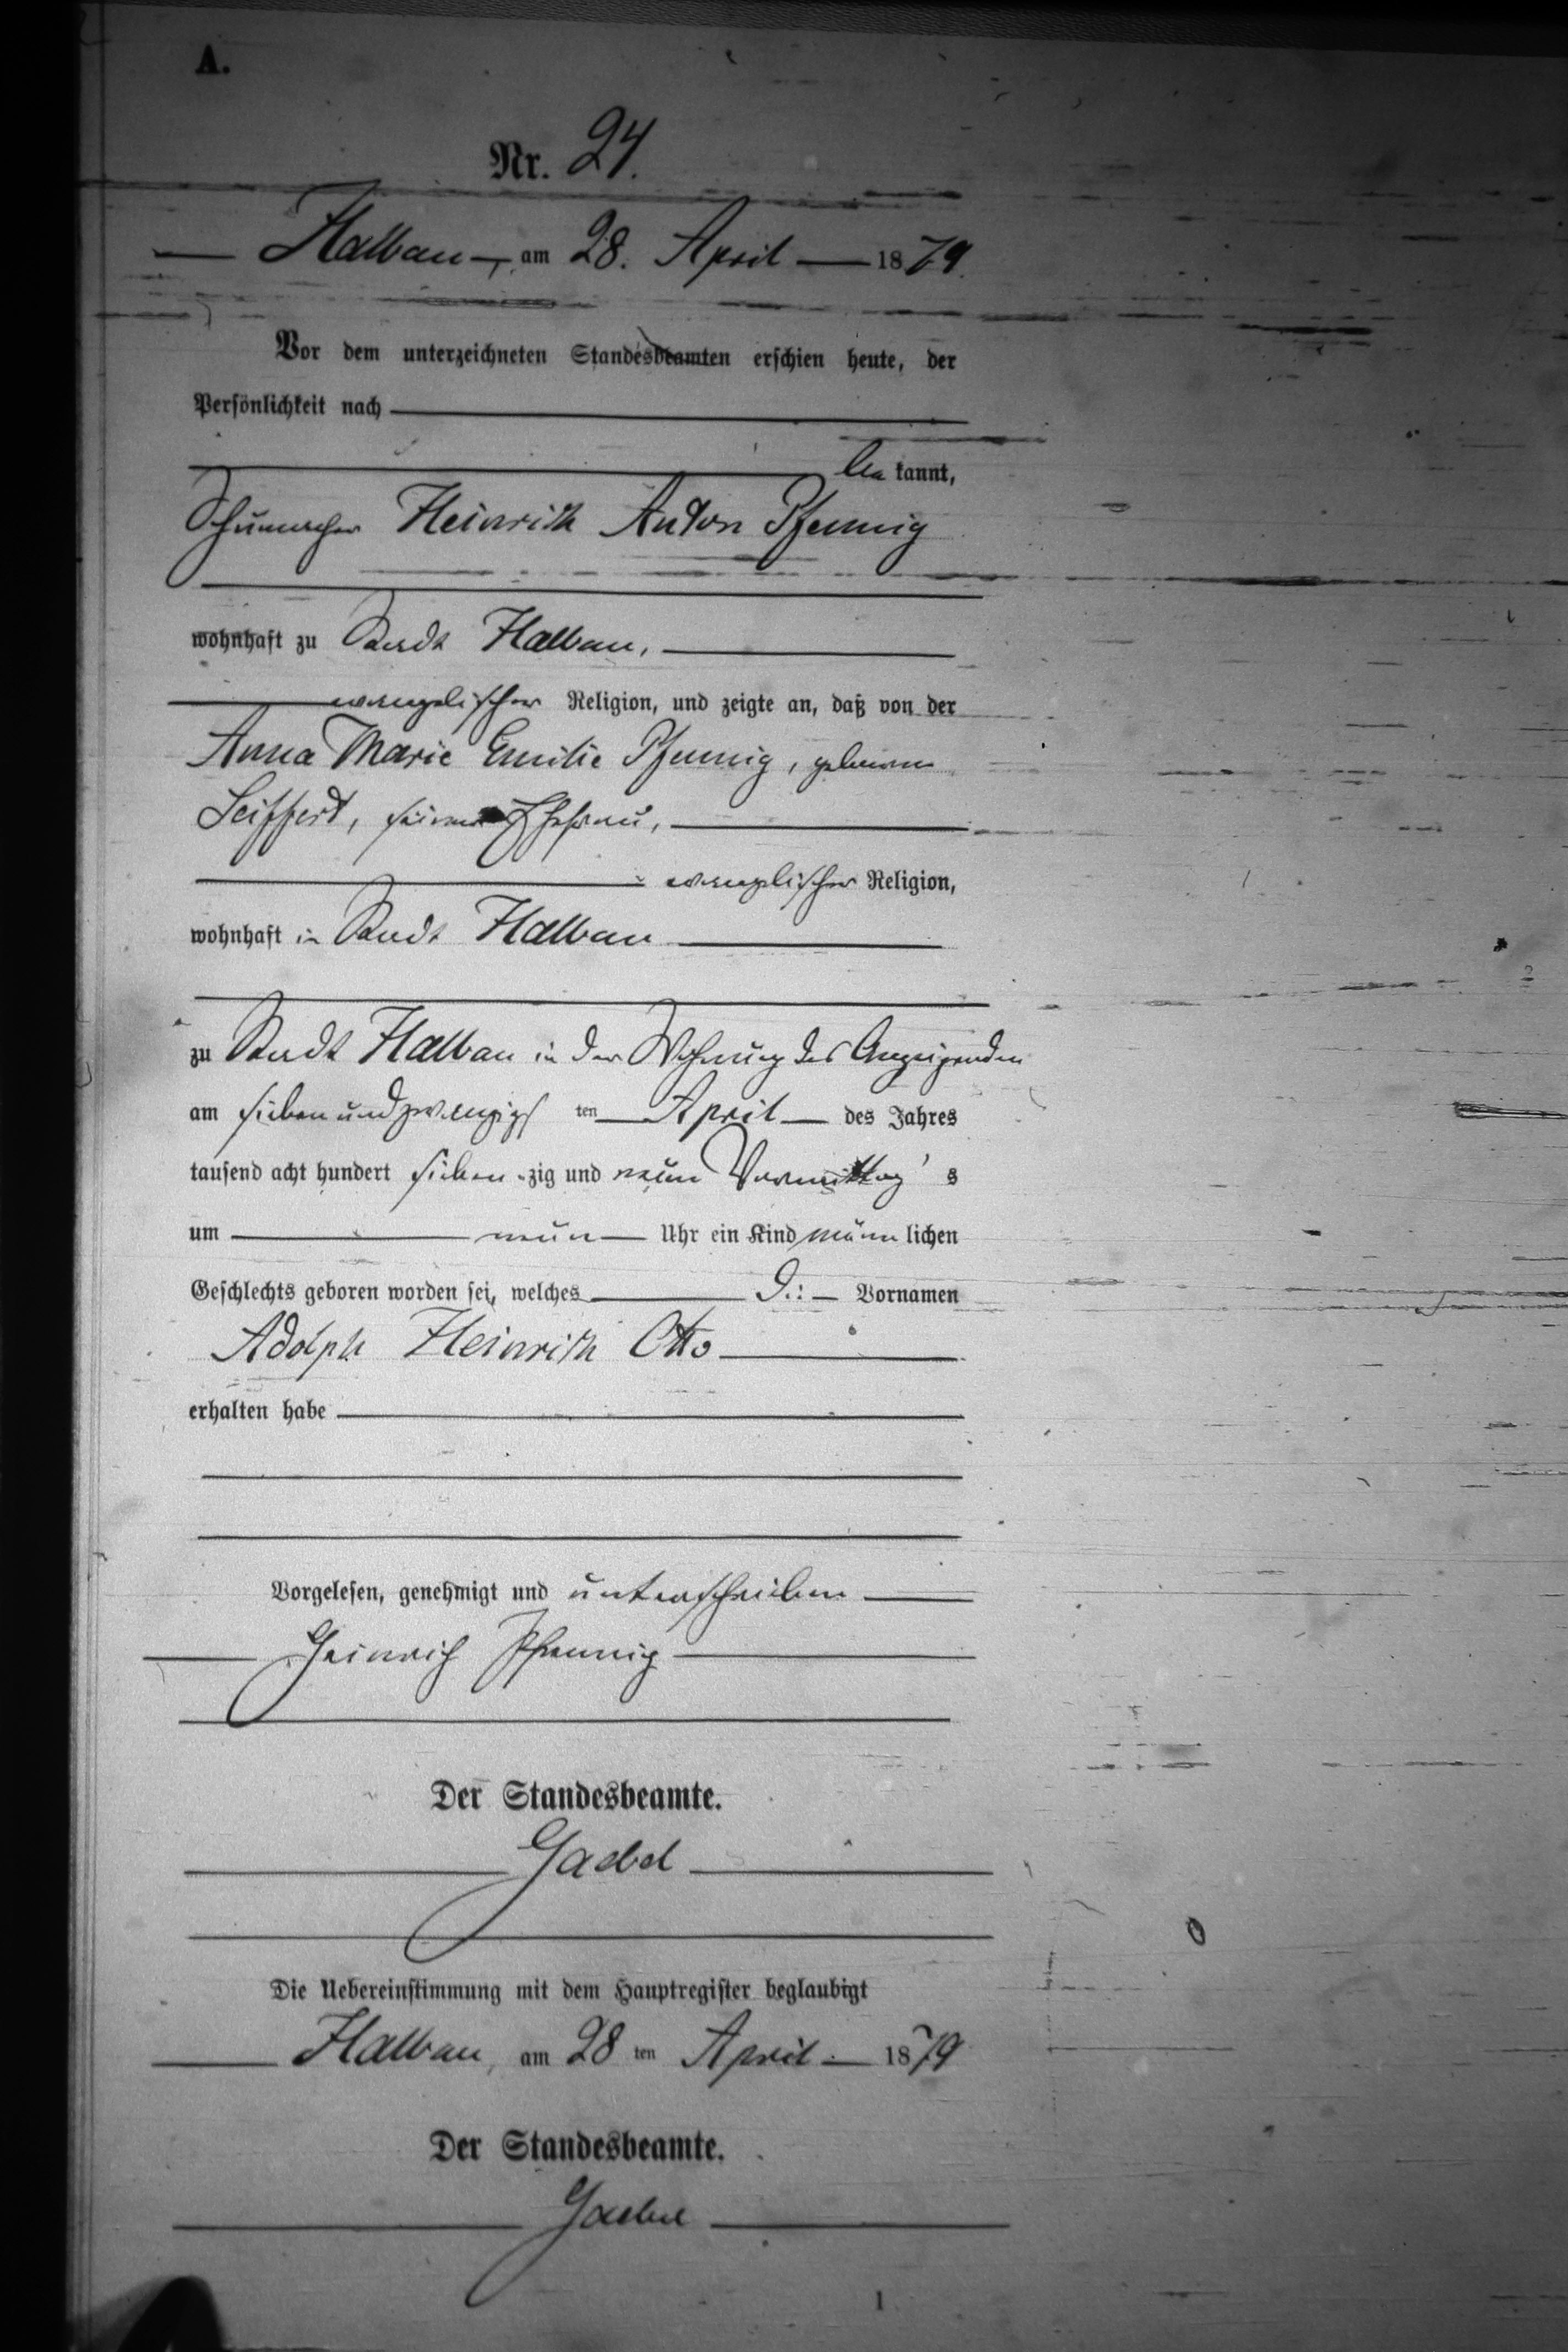 A.
Nr. 24.
Halbau, am 28. April 1879.
Vor dem unterzeichneten Standesbeamten erschien heute, der
Persönlichkeit nach
be kannt,
Schumacher Heinrich Anton Pfennig
wohnhaft zu Stadt Halbau,
evangelischer Religion, und zeigte an, daß von der
Anna Marie Emilie Pfennig, geborene
Seiffert, seiner Ehefrau,
evangelischer Religion,
wohnhaft in Stadt Halbau
zu Stadt Halbau in der Wohnung des Anzeigenden
am siebenundzwanzigs ten April des Jahres
tausend acht hundert sieben zig und neun Vormittag s
um neun Uhr ein Kind männ lichen
Geschlechts geboren worden sei, welches d.: Vornamen
Adolph Heinrich Otto
erhalten habe
Vorgelesen, genehmigt und unterschrieben
Heinrich Pfennig
Der Standesbeamte.
Gaebel
Die Uebereinstimmung mit dem Hauptregister beglaubigt
Halbau, am 28 ten April 1879
Der Standesbeamte.
Gaebel
1